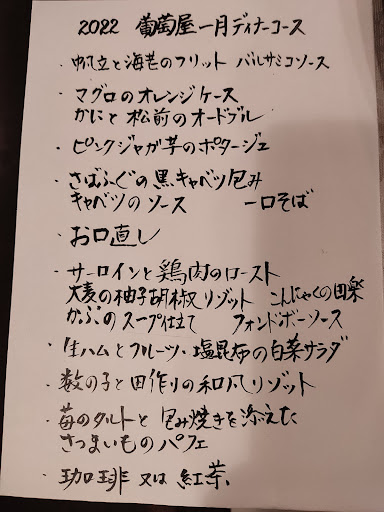 2022 葡萄屋 一月ディナーコース
・帆立と海老のフリット バルサミコソース
・マグロのオレンジケース
かにと松前のオードブル
・ピンクジャガ芋のポタージュ
・さばふぐの黒キャベツ包み
キャベツのソース 一口そば
・お口直し
・サーロインと鶏肉のロースト
大麦の柚子胡椒リゾット こんにゃくの田楽
かぶのスープ仕立て フォンドボーソース
・生ハムとフルーツ・塩昆布の白菜サラダ
・数の子と田作りの和風リゾット
・苺のタルトと包み焼きを添えた
さつまいものパフェ
・珈琲 又は 紅茶、